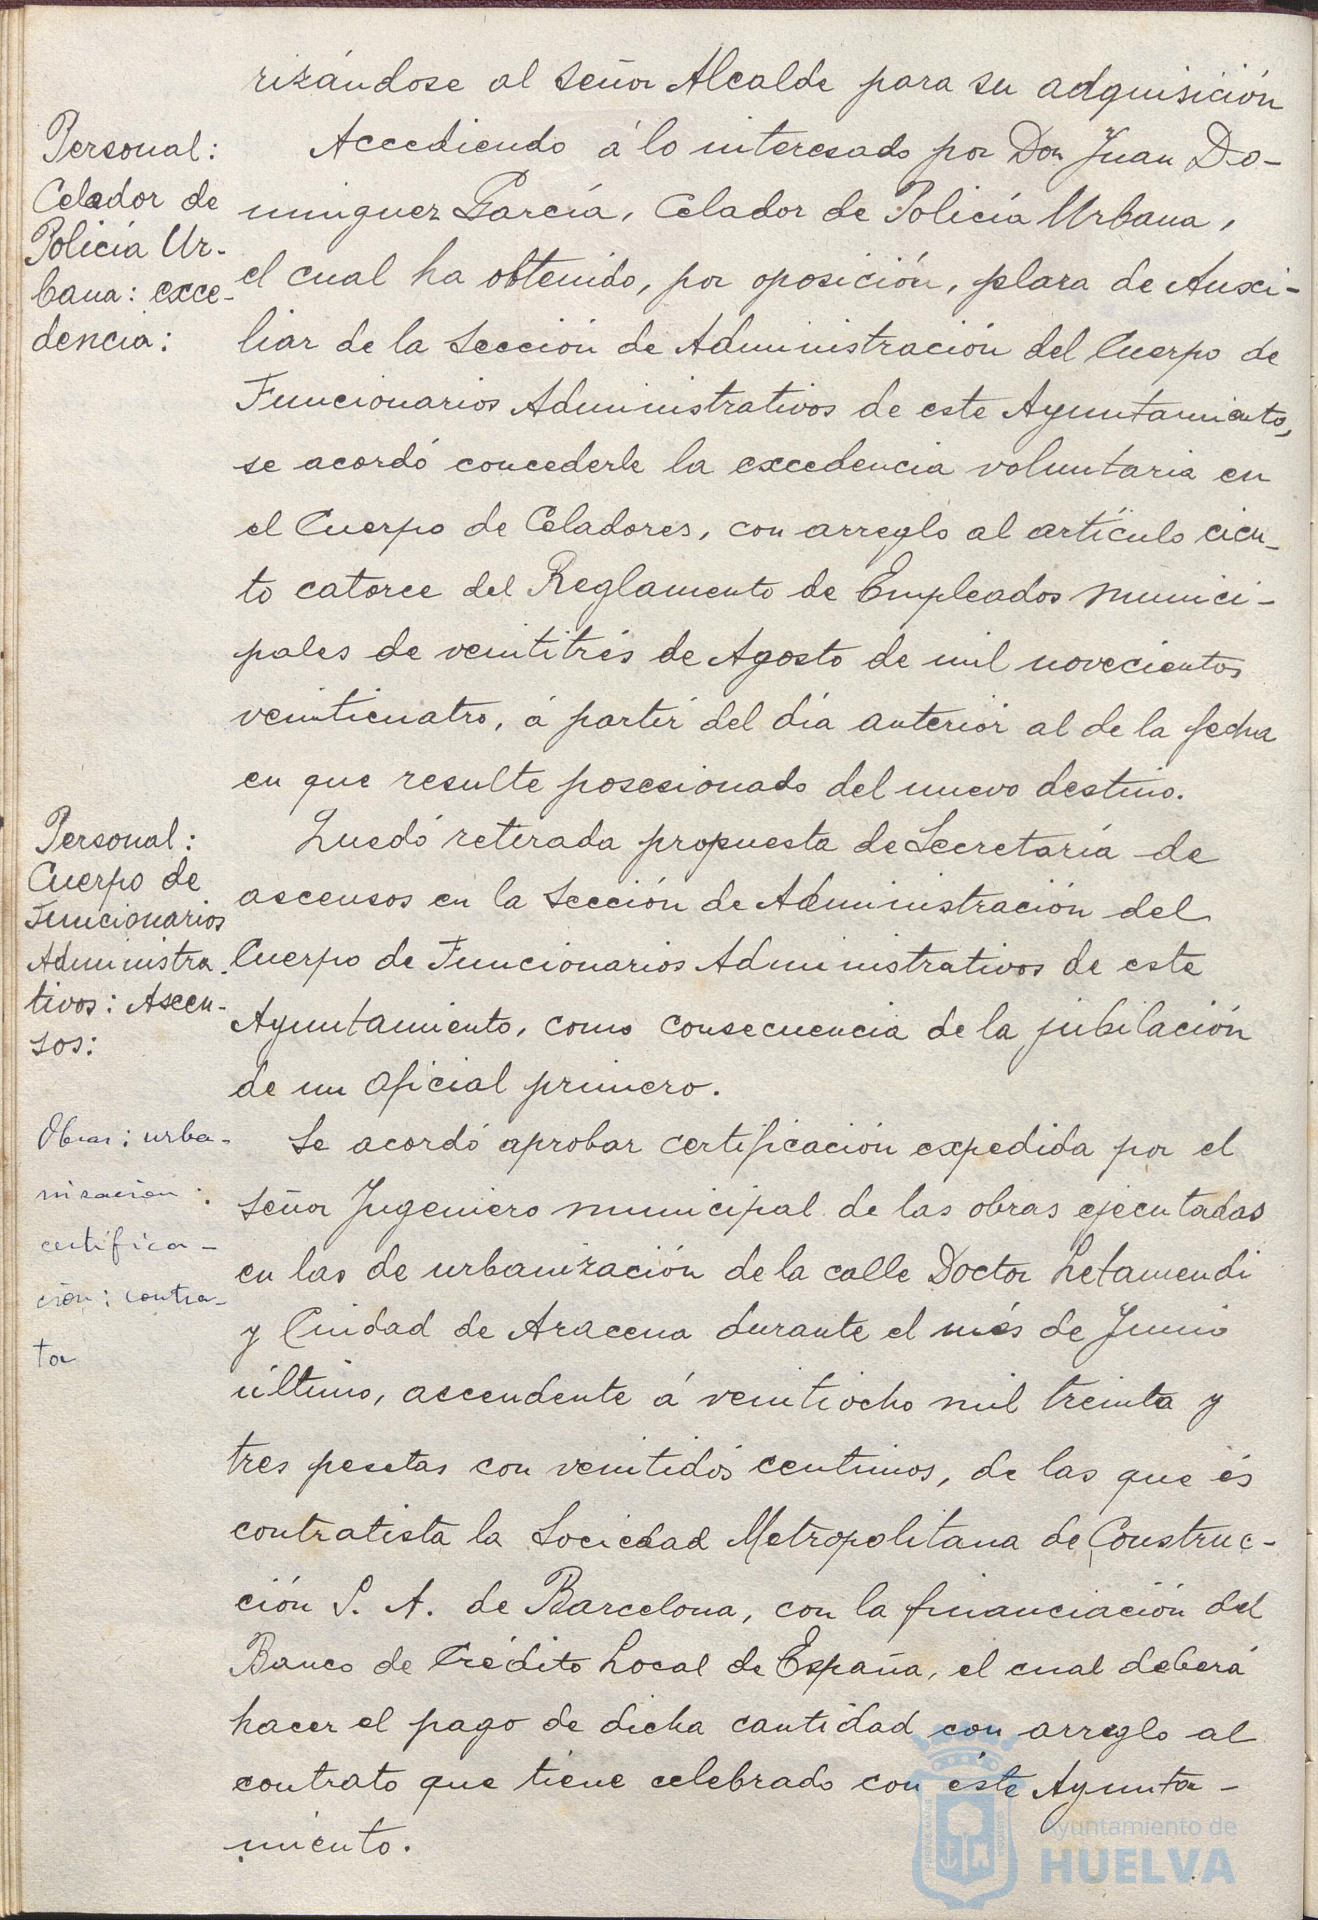 rizándose al Señor Alcalde para su adquisición
Personal:
Celador de
Policía Ur-
bana: exce-
dencia:
Accediendo á lo interesado por Don Juan Do-
minguez García, Celador de Policía Urbana,
el cual ha obtenido, por oposición, plaza de Auxi-
liar de la Sección de Administración del Cuerpo de
Funcionarios Administrativos de este Ayuntamiento,
se acordó concederle la excedencia voluntaria en
el Cuerpo de Celadores, con arreglo al artículo cien-
to catorce del Reglamento de Empleados munici-
pales de veintitrés de Agosto de mil novecientos
veinticuatro, á partir del día anterior al de la fecha
en que resulte posesionado del nuevo destino.
Personal:
Cuerpo de
Funcionarios
Administra-
tivos: Ascen-
sos:
Quedó retirada propuesta de Secretaría de
ascensos en la Sección de Administración del
Cuerpo de Funcionarios Administrativos de este
Ayuntamiento, como consecuencia de la jubilación
de un oficial primero.
Obras: urba-
nización:
certifica-
ción: contra-
ta
Se acordó aprobar certificación expedida por el
Señor Ingeniero municipal de las obras ejecutadas
en las de urbanización de la calle Doctor Letamendi
y Ciudad de Aracena durante el més de Junio
último, ascendente á veintiocho mil treinta y
tres pesetas con veintidós centimos, de las que és
contratista la Sociedad Metropolitana de Construc-
ción S. A. de Barcelona, con la financiación del
Banco de Crédito Local de España, el cual deberá
hacer el pago de dicha cantidad con arreglo al
contrato que tiene celebrado con éste Ayunta-
miento.
Ayuntamiento de
HUELVA